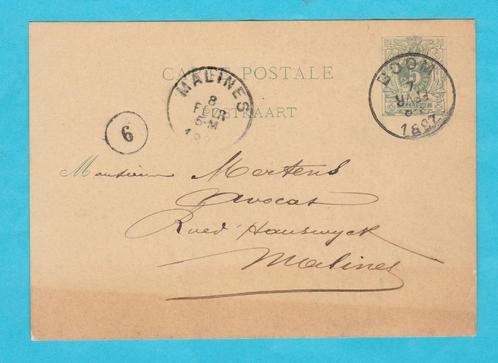 CARTE POSTALE
POSTKAART
5
MALINES
8
FEVR
5-M
BOOM
FEVR
1887
6
Monsieur Mertens
avocat
Rue d'Hanswyck
Malines